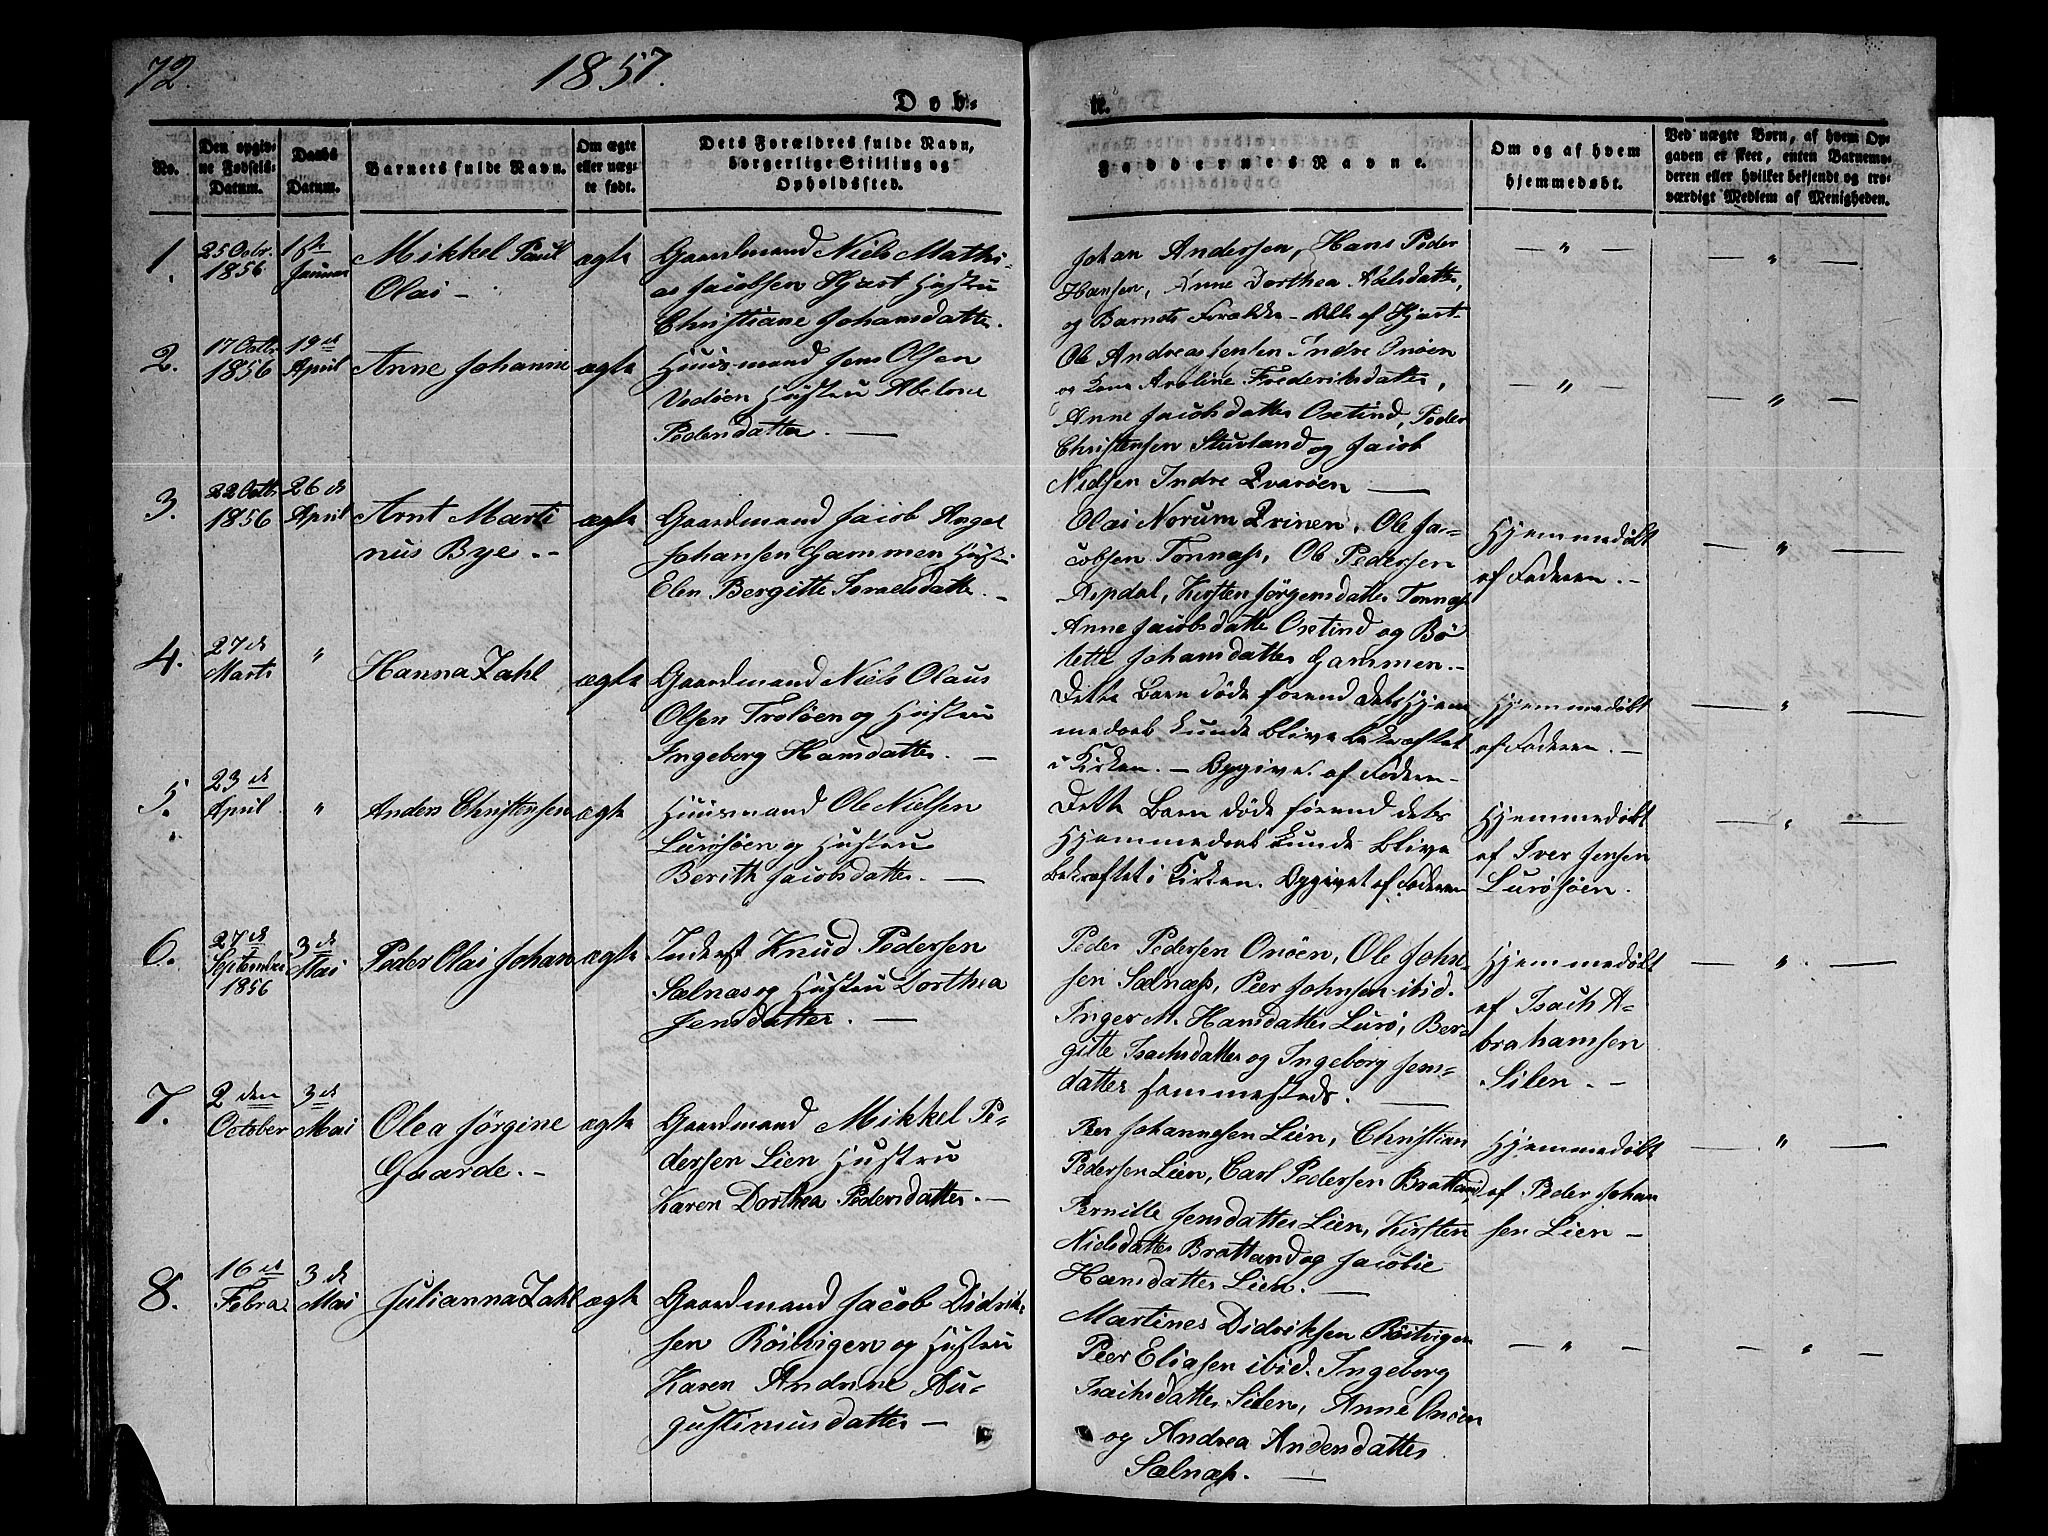 72.
1857.
Døb-
te.
No.
Den opgiv-
ne Fødsels-
Datum.
Daabs
Datum.
Barnets fulde Navn.
Om ægte
eller uægt-
te født.
Dets Forældres fulde Navn,
borgerlige Stilling og
Opholdssted.
Faddernes Navne.
Om og af hvem
hjemmedøbt.
Ved uægte Børn, af hvem Op-
gaven er skeet, enten Barnemo-
deren eller hvilket bekjendt og tro-
værdigt Medlem af Menigheden.
1.
25 Octbr.
1856
1ste
Januar
Mikkel Paul
Olai -
ægte
Gaardmand Niels Mathi-
as Jacobsen Hjart Hustru
Christiane Johansdatter.
Johan Andersen, Hans Peder
Hansen, Anne Dorthea Axelsdatter,
og Barnets Forældre - Alle af Hjart -
— " —
— " —
2.
17 Octbr
1856
19de
April
Anne Johanne
ægte
Huusmand Jens Olsen
Vedøen Hustru Abelone
Pedersdatter. —
Ole Andreas Jentsen Indre Onøen
og Kone Aroline Frederiksdatter,
Anne Jacobsdatter Oxtind, Peder
Christensen Stuvland og Jacob
Nielsen Indre Qvarøen —
— " —
— " —
3.
22 Octbr
1856
26 de
April
Arnt Marti
nus Bye. -
ægte
Gaardmand Jacob Angel
Johansen Gammen Hustr.
Elen Bergitte Israelsdatter. -
Olai Norum Qvinen, Ole Ja-
cobsen Tonnæss, Ole Pedersen
Aspdal, Kirsten Jørgensdatter Tonnæss
Anne Jacobsdatter Oxtind og Bø
lette Johansdatter Gammen. -
Hjemmedøbt
af Faderen. -
— " —
4.
27 de
Marts
"
Hanna Zahl
ægte
Gaardmand Niels Olaus
Olsen Troløen og Hustru
Ingeborg Hansdatter. —
Dette Barn døde førend dets Hjem
medaab kunde blive bekræftet
i Kirken. - Opgivet af Faderen -
Hjemmedøbt
af Faderen. -
— " —
5.
23 de
April
"
Anders Christensen
ægte
Huusmand Ole Nielsen
Lurøsøen og Hustru
Berith Jacobsdatter. —
Dette Barn døde førend dets
Hjemmedaab kunde blive
bekræftet i Kirken. Opgivet af Faderen
Hjemmedøbt
af Iver Jensen
Lurøsøen.
— " —
6.
27de
September
1856
3de
Mai
Peder Olai Johan
ægte
Inderst Knud Pedersen
Sælnæs og Hustru Dorthea
Jensdatter. —
Peder Pedersen Onøen, Ole John-
sen Sælnæss, Peer Johnsen ibid.
Inger M. Hansdatter Lurø, Ber-
gitte Isachsdatter og Ingeborg Jens-
datter sammesteds. —
Hjemmedøbt
af Isach A-
brahamsen
Silen. -
— " —
7.
2 den
October
3de
Mai
Olea Jørgine
Gaarde. -
ægte
Gaardmand Mikkel Pe-
dersen Lien Hustru
Karen Dorthea Pedersdatter. -
Peer Johannesen Lien, Christian
Pedersen Lien, Carl Pedersen Bratland
Pernille Jensdatter Lien, Kirsten
Nielsdatter Bratland og Jacobie
Hansdatter Lien. —
Hjemmedøbt
af Peder Johan
sen Lien -
— " —
8.
16de
Febra.
3 de
Mai
Julianna Zahl
ægte
Gaardmand Jacob Didrik-
sen Röitvigen og Hustru
Karen Andrine Au-
gustinusdatter -
Martines Didriksen Röitvigen
Peer Eliasen ibid. Ingeborg
Isachsdatter Silen, Anne Onøen
og Andrea Andersdatter
Sælnæss. —
— " —
— " —